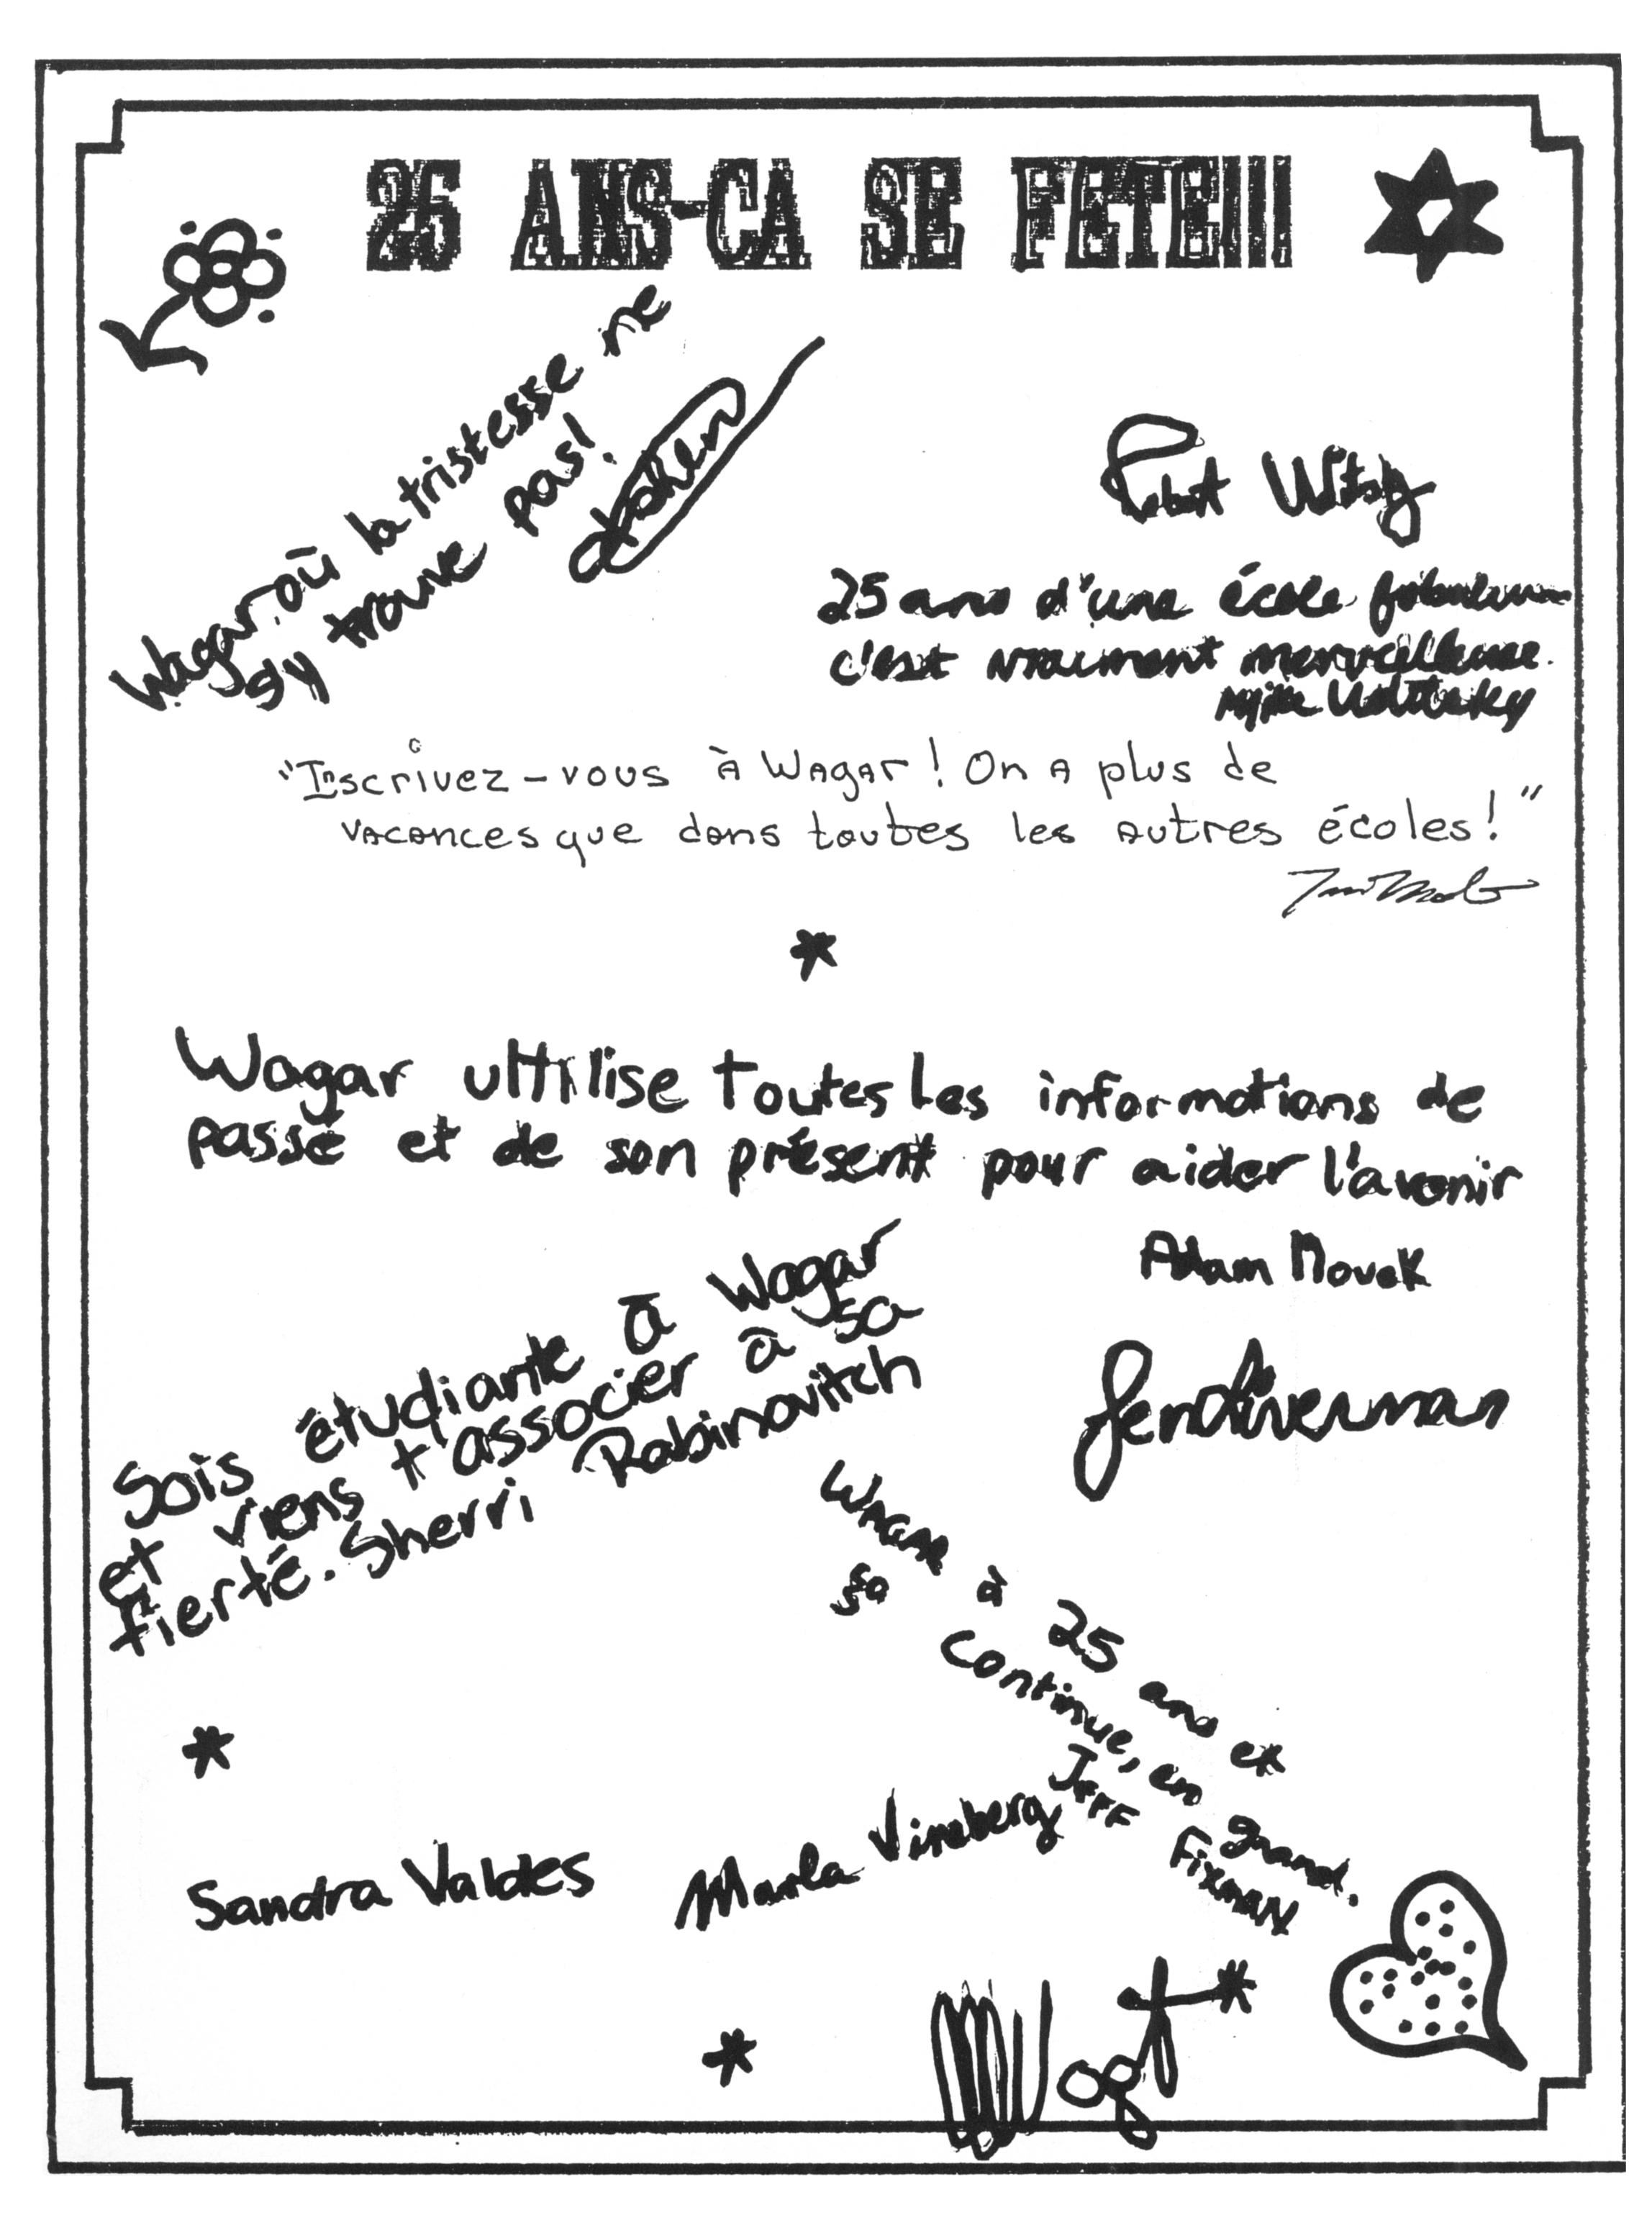 25 ANS-CA SE FETE!!!
Wagar, où la tristesse ne
s'y trouve pas!
25 ans d'une école
c'est vraiment merveilleuse.
"Inscrivez-vous à Wagar! On a plus de
vacances que dans toutes les autres écoles!"
Wagar ultilise toutes les informations de
passé et de son présent pour aider l'avenir
Adam Novak
Sois étudiante à Wagar
et viens t'associer à sa
fierté. Sherri Rabinovitch
Wagar à 25 ans et
ça continue, en grand.
Jeff Fixman
Sandra Valdes
Marla Vineberg
Vogt